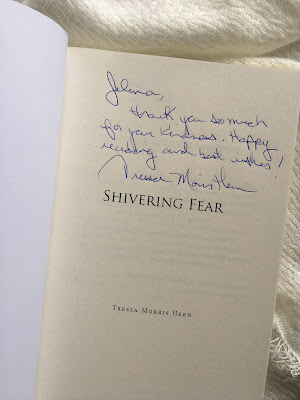 Jelena,
thank you so much
for your kindness. Happy
reading and best wishes!
Tressa Morris Hern
SHIVERING FEAR
TRESSA MORRIS HERN